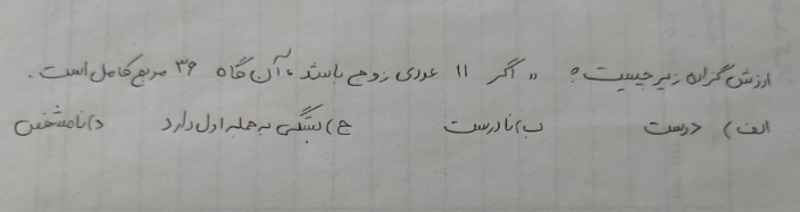 ارزش گزاره زیر چیست؟ «اگر ۱۱ عددی زوج باشد، آن گاه ۳۶ مربع کامل است.
الف) درست ب) نادرست ج) بستگی به جمله اول دارد د) نامشخص